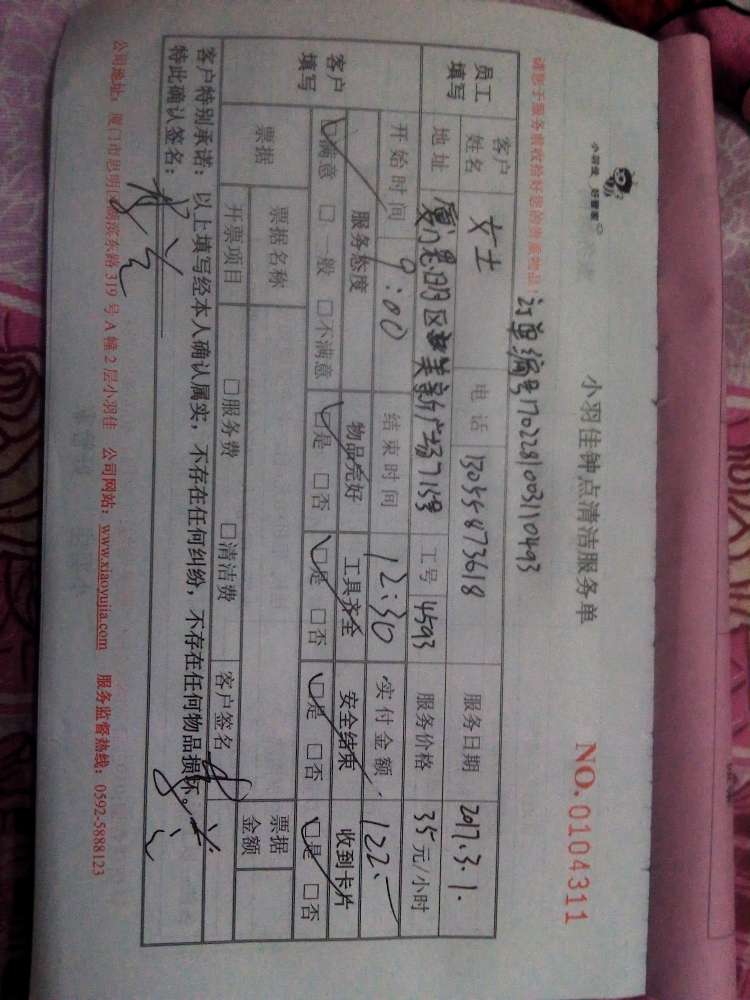 小羽佳 好管家
小羽佳钟点清洁服务单
NO. 0104311
订单编号1702281003110493
请您于服务前收拾好您的贵重物品!
员工填写 客户姓名 女士 电话 13055873618 服务日期 2017.3.1.
地址 厦门思明区 新广场715号 工号 4593 服务价格 35元/小时
开始时间 9:00 结束时间 12:30 实付金额 122.
客户填写 服务态度 物品完好 工具齐全 安全结束 收到卡片
☑满意 □一般 □不满意 ☑是 □否 ☑是 □否 ☑是 □否 ☑是 □否
票据 票据名称 票据金额
开票项目 □服务费 □清洁费 客户签名
客户特别承诺:以上填写经本人确认属实,不存在任何纠纷,不存在任何物品损坏。
特此确认签名:
公司地址:厦门市思明区湖滨东路319号A幢2层小羽佳 公司网站:www.xiaoyujia.com 服务监督热线:0592-5888123